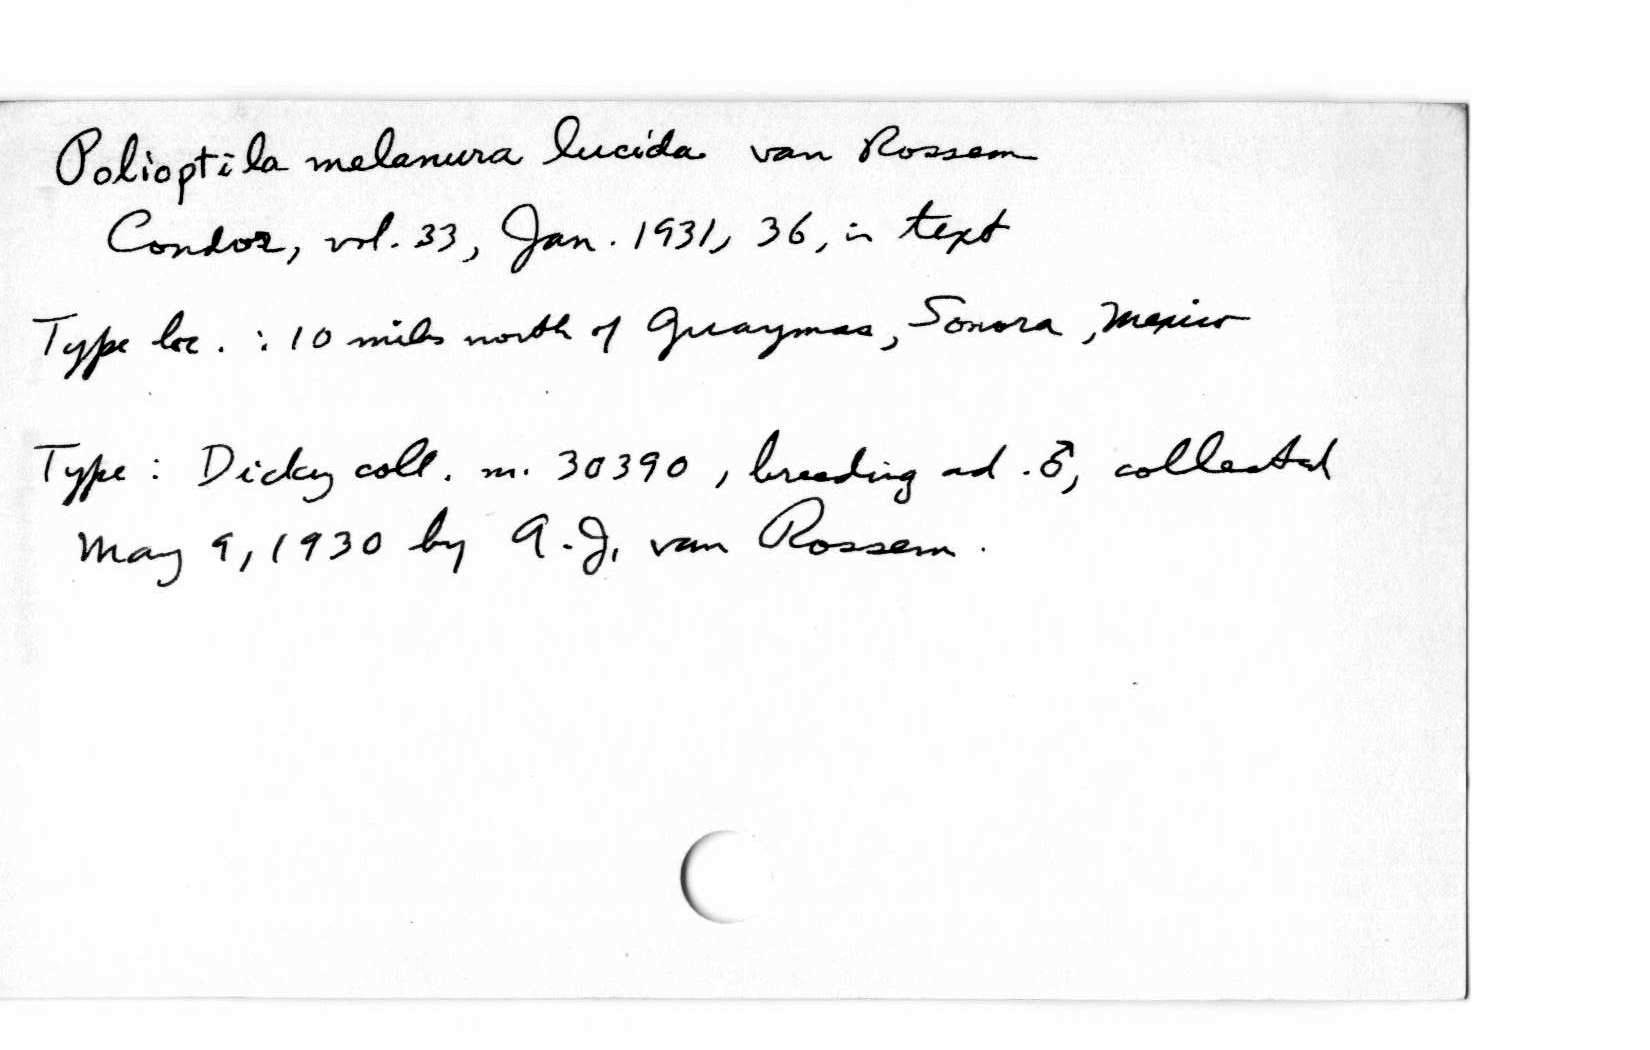 Polioptila melanura lucida van Rossem
Condor, vol. 33, Jan. 1931, 36, in text
Type loc. : 10 miles north of Guaymas, Sonora, Mexico
Type : Dickey coll. no. 30390, breeding ad. ♂, collected
May 9, 1930 by A. J. van Rossem.